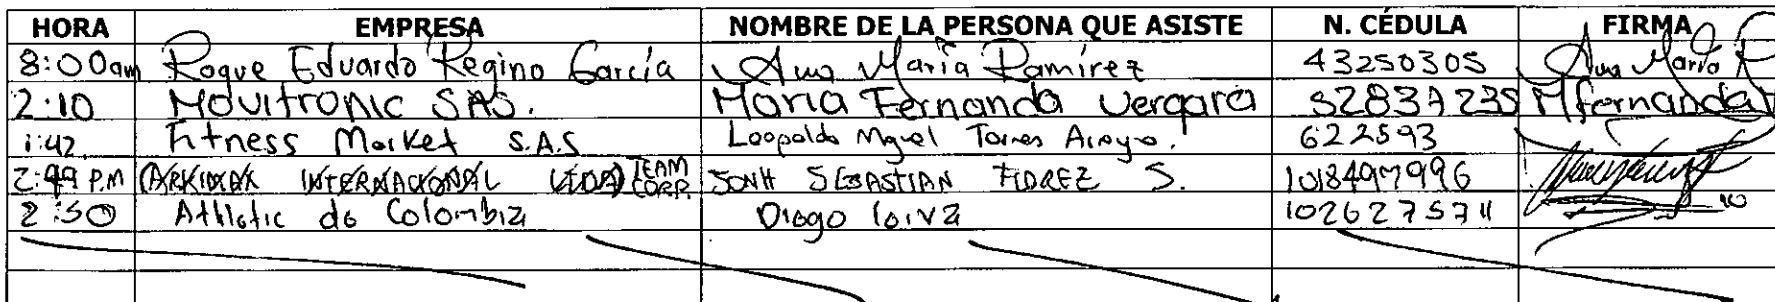 HORA EMPRESA NOMBRE DE LA PERSONA QUE ASISTE N. CÉDULA FIRMA
8:00am Roque Eduardo Regino García Ana María Ramírez 43250305 Ana María R
2:10 Movitronic SAS. Maria Fernanda Vergara 52837235 Mfernanda
1:42 Fitness Market S.A.S Leopoldo Miguel Torres Arroyo. 622593
2:49 P.M INTERNACIONAL TEAM CORP. JONH SEBASTIAN FLOREZ S. 1018497996
2:50 Athletic de Colombia Diego 1026275711